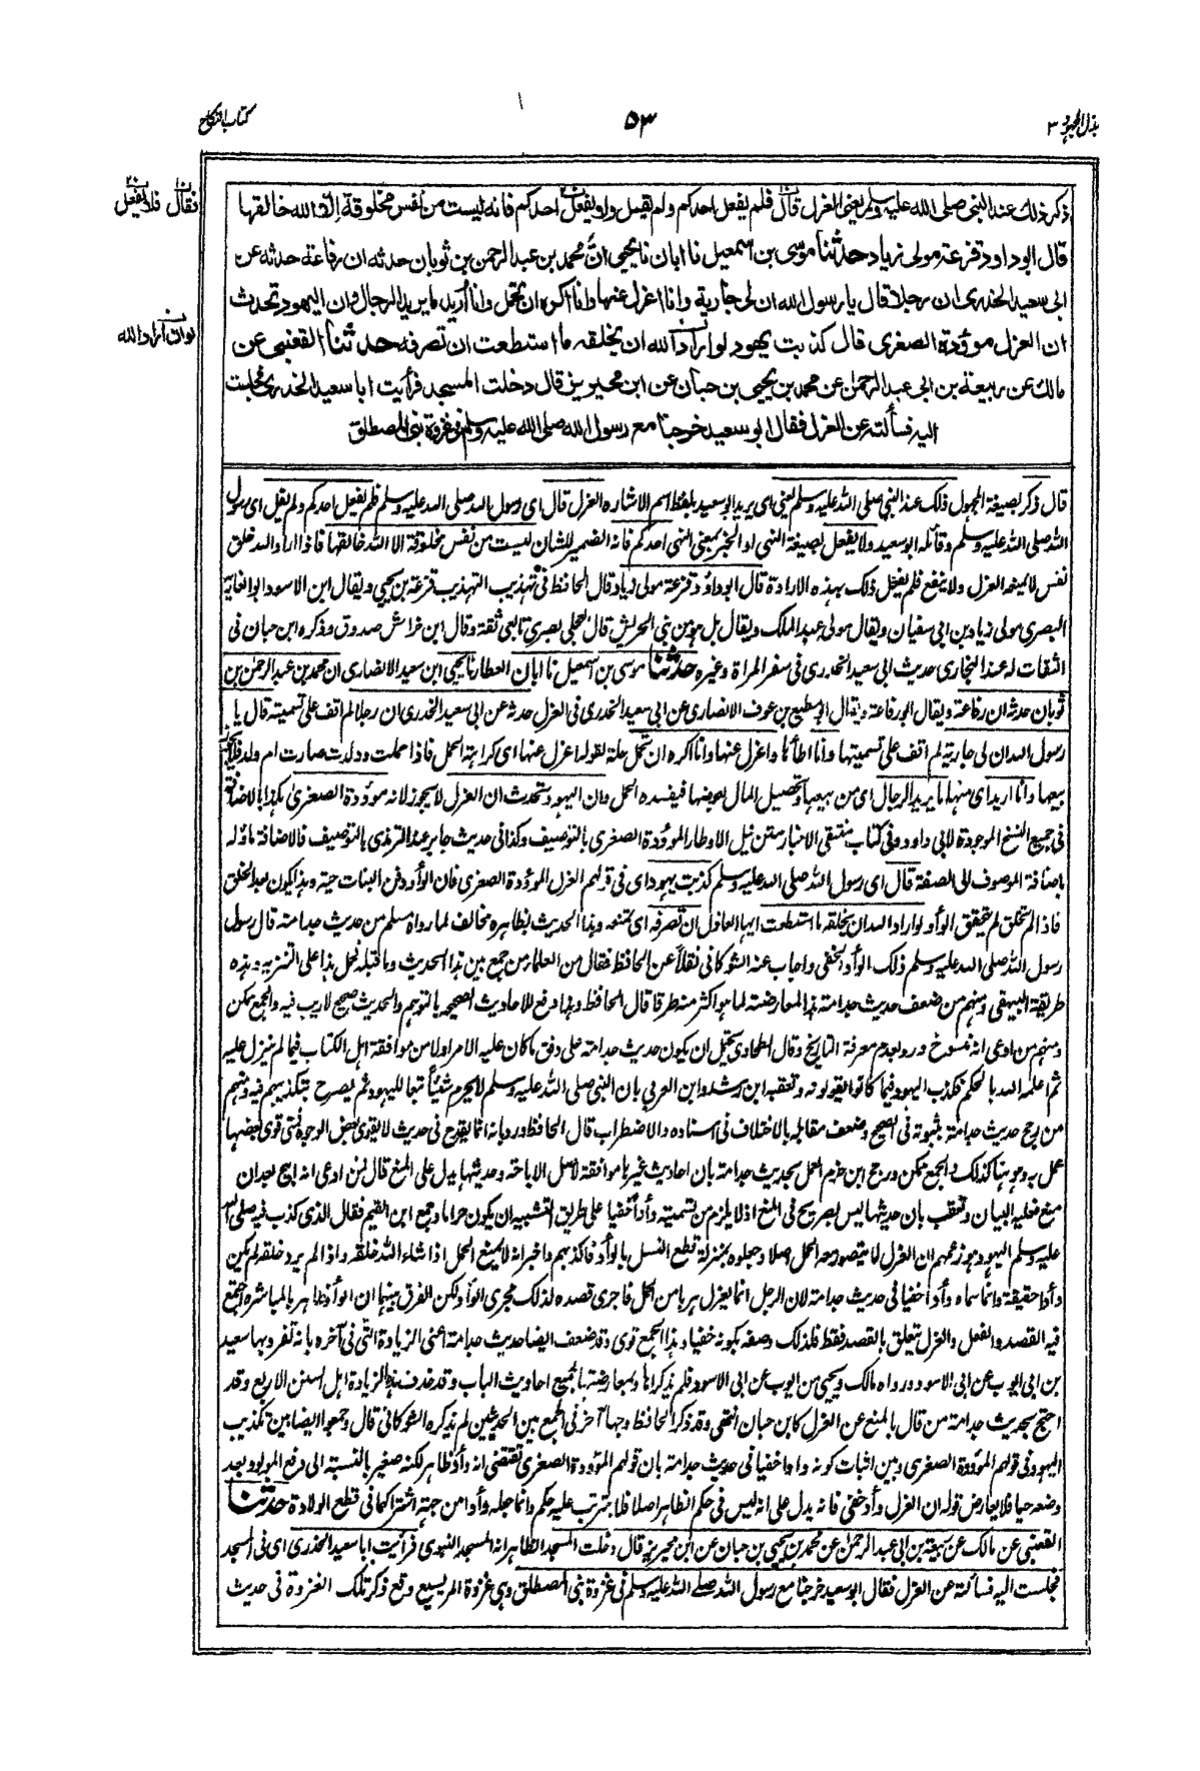 بذل المجهود ٣
٥٣
كتاب النكاح
ذكر ذلك عند النبي صلى الله عليه وسلم يعني العزل قال فلم يفعل احدكم ولم يقل ولا يفعل احدكم فانه ليست من نفس مخلوقة الا الله خالقها
قال ابو داود قزعة مولى زياد حدثنا موسى بن اسمعيل نا ابان نا يحيى ان محمد بن عبد الرحمن بن ثوبان حدثه ان رفاعة حدثه عن
ابى سعيد الخدرى ان رجلا قال يا رسول الله ان لى جارية وانا اعزل عنها وانا اكره ان تحمل وانا اريد ما يريد الرجال وان اليهود تحدث
ان العزل موؤدة الصغرى قال كذبت يهود لو اراد الله ان يخلقه ما استطعت ان تصرفه حدثنا القعنبى عن
مالك عن ربيعة بن ابى عبد الرحمن عن محمد بن يحيى بن حبان عن ابن محيريز قال دخلت المسجد فرأيت ابا سعيد الخدرى فجلست
اليه فسألته عن العزل فقال ابو سعيد خرجنا مع رسول الله صلى الله عليه وسلم فى غزوة بنى المصطلق
فقال فلا يفعل
لو ان اراد الله
قال ذكر بصيغة المجهول ذلك عند النبي صلى الله عليه وسلم يعني اى يريد ابو سعيد بلفظ اسم الاشارة العزل قال اى رسول الله صلى الله عليه وسلم فلم يفعل احدكم ولم يقل اى رسول
الله صلى الله عليه وسلم وقائله ابو سعيد ولا يفعل بصيغة النهي او الخبر بمعنى النهى احدكم فانه الضمير للشان ليست من نفس مخلوقة الا الله خالقها فاذا اراد الله خلق
نفس لا يمنعه العزل ولا ينفع فلم يفعل ذلك بهذه الارادة قال ابو داؤد قزعة مولى زياد قال الحافظ فى تهذيب التهذيب قزعة بن يحيى ويقال ابن الاسود ابو الغادية
البصرى مولى زياد بن ابى سفيان ويقال مولى عبد الملك ويقال بل هو من بنى الحريش قال العجلى بصرى تابعى ثقة وقال ابن خراش صدوق وذكره ابن حبان فى
الثقات له عند البخارى حديث ابى سعيد الخدرى فى سفر المراة وغيره حدثنا موسى بن اسمعيل نا ابان العطار نا يحيى ابن سعيد الانصارى ان محمد بن عبد الرحمن بن
ثوبان حدثه ان رفاعة ويقال ابو رفاعة ويقال ابو مطيع بن عوف الانصارى عن ابى سعيد الخدرى فى العزل حدثه عن ابى سعيد الخدرى ان رجلا لم اقف على تسميته قال يا
رسول الله ان لى جارية لم اقف على تسميتها وانا اطأها واعزل عنها وانا اكره ان تحمل علة لقوله اعزل عنها اى كراهية الحمل فاذا حملت وولدت صارت ام ولد فلا يجوز
بيعها وانا اريد اى منها ما يريد الرجال اى من بيعها وتحصيل المال بعوضها فيفسده الحمل وان اليهود تحدث ان العزل لا يجوز لانه موؤدة الصغرى هكذا بالاضافة
فى جميع النسخ الموجودة لابى داود وفى كتاب منتقى الاخبار متن نيل الاوطار الموؤدة الصغرى بالتوصيف وكذا فى حديث جابر عند الترمذى بالتوصيف فالاضافة مأولة
باضافة الموصوف الى الصفة قال اى رسول الله صلى الله عليه وسلم كذبت يهود اى فى قولهم العزل الموؤدة الصغرى فان الوأد دفن البنات حية وهذا يكون بعد الخلق
فاذا لم تتخلق لم يتحقق الوأد لو اراد الله ان يخلقه ما استطعت ايها العازل ان تصرفه اى تمنعه وهذا الحديث بظاهره مخالف لما رواه مسلم من حديث جدامة قال رسول
رسول الله صلى الله عليه وسلم ذلك الوأد الخفى واجاب عنه الشوكانى نقلاً عن الحافظ فقال من العلماء من جمع بين هذا الحديث وما قبله فحمل هذا على التنزيه وهذه
طريقة البيهقى ومنهم من ضعف حديث جدامة هذا لمعارضته لما هو اكثر منه طرقا قال الحافظ وهذا دفع للاحاديث الصحيحة بالتوهم والحديث صحيح لا ريب فيه والجمع ممكن
ومنهم من ادعى انه منسوخ ورد بعدم معرفة التاريخ وقال الطحاوى يحتمل ان يكون حديث جدامة على وفق ما كان عليه الامر اولا من موافقة اهل الكتاب فيما لم ينزل عليه
ثم اعلمه الله بالحكم فكذب اليهود فيما كانوا يقولونه وتعقبه ابن رشد وابن العربى بان النبى صلى الله عليه وسلم لا يحرم شئيًا تبعا لليهود ثم يصرح بتكذيبهم فيه ومنهم
من رجح حديث جدامة بثبوته فى الصحيح وضعف مقابله بالاختلاف فى اسناده والاضطراب قال الحافظ ورد بانه انما يقدح فى حديث لا يقوى بعض الوجوه فمتى قوى بعضها
عمل به وهو هنا كذلك والجمع ممكن ورجح ابن حزم العمل بحديث جدامة بان احاديث غيرها موافقة لاصل الاباحة وحديثها يدل على المنع قال فمن ادعى انه ابيح بعد ان
منع فعليه البيان وتعقب بان حديثها ليس بصريح فى المنع اذ لا يلزم من تسميته وأدا خفيا على طريق التشبيه ان يكون حراما وجمع ابن القيم فقال الذى كذب فيه صلى الله
عليه وسلم اليهود هو زعمهم ان العزل لا يتصور معه الحمل اصلا وجعلوه بمنزلة قطع النسل بالوأد فاكذبهم واخبر انه لا يمنع الحمل اذا شاء الله خلقه واذا لم يرد خلقه لم يكن
وأدا حقيقة وانما سماه وأدا خفيا فى حديث جدامة لان الرجل انما يعزل هربا من الحمل فاجرى قصده لذلك مجرى الوأد ولكن الفرق بينهما ان الوأد ظاهر بالمباشرة اجتمع
فيه القصد والفعل والعزل يتعلق بالقصد فقط فلذلك وصفه بكونه خفيا وهذا الجمع قوى وقد ضعف ايضا حديث جدامة اعنى الزيادة التى فى آخره بانه تفرد بها سعيد
بن ابى ايوب عن ابى الاسود ورواه مالك ويحيى بن ايوب عن ابى الاسود فلم يذكراها وبمعارضتها لجميع احاديث الباب وقد حذف هذه الزيادة اهل السنن الاربع وقد
احتج بحديث جدامة من قال بالمنع عن العزل كابن حبان انتهى وقد ذكر الحافظ وجها آخر فى الجمع بين الحديثين لم يذكره الشوكانى قال وجمعوا ايضا بين تكذيب
اليهود فى قولهم الموؤدة الصغرى وبين اثبات كونه وادا خفيا فى حديث جدامة بان قولهم الموؤدة الصغرى تقتضى انه وأد ظاهر لكنه صغير بالنسبة الى دفع المولود بعد
وضعه حيا فلا يعارض قوله ان العزل وأد خفى فانه يدل على انه ليس فى حكم الظاهر اصلا فلا يترتب عليه حكم وانما جعله وأدا من جهة اشتراكهما فى قطع الولادة حدثنا
القعنبى عن مالك عن ربيعة بن ابى عبد الرحمن عن محمد بن يحيى بن حبان عن ابن محيريز قال دخلت المسجد الظاهر انه المسجد النبوى فرأيت ابا سعيد الخدرى اى فى المسجد
فجلست اليه فسألته عن العزل فقال ابو سعيد خرجنا مع رسول الله صلے الله عليه وسلم فى غزوة بنى المصطلق وهى غزوة المريسيع وقع ذكر تلك الغزوة فى حديث